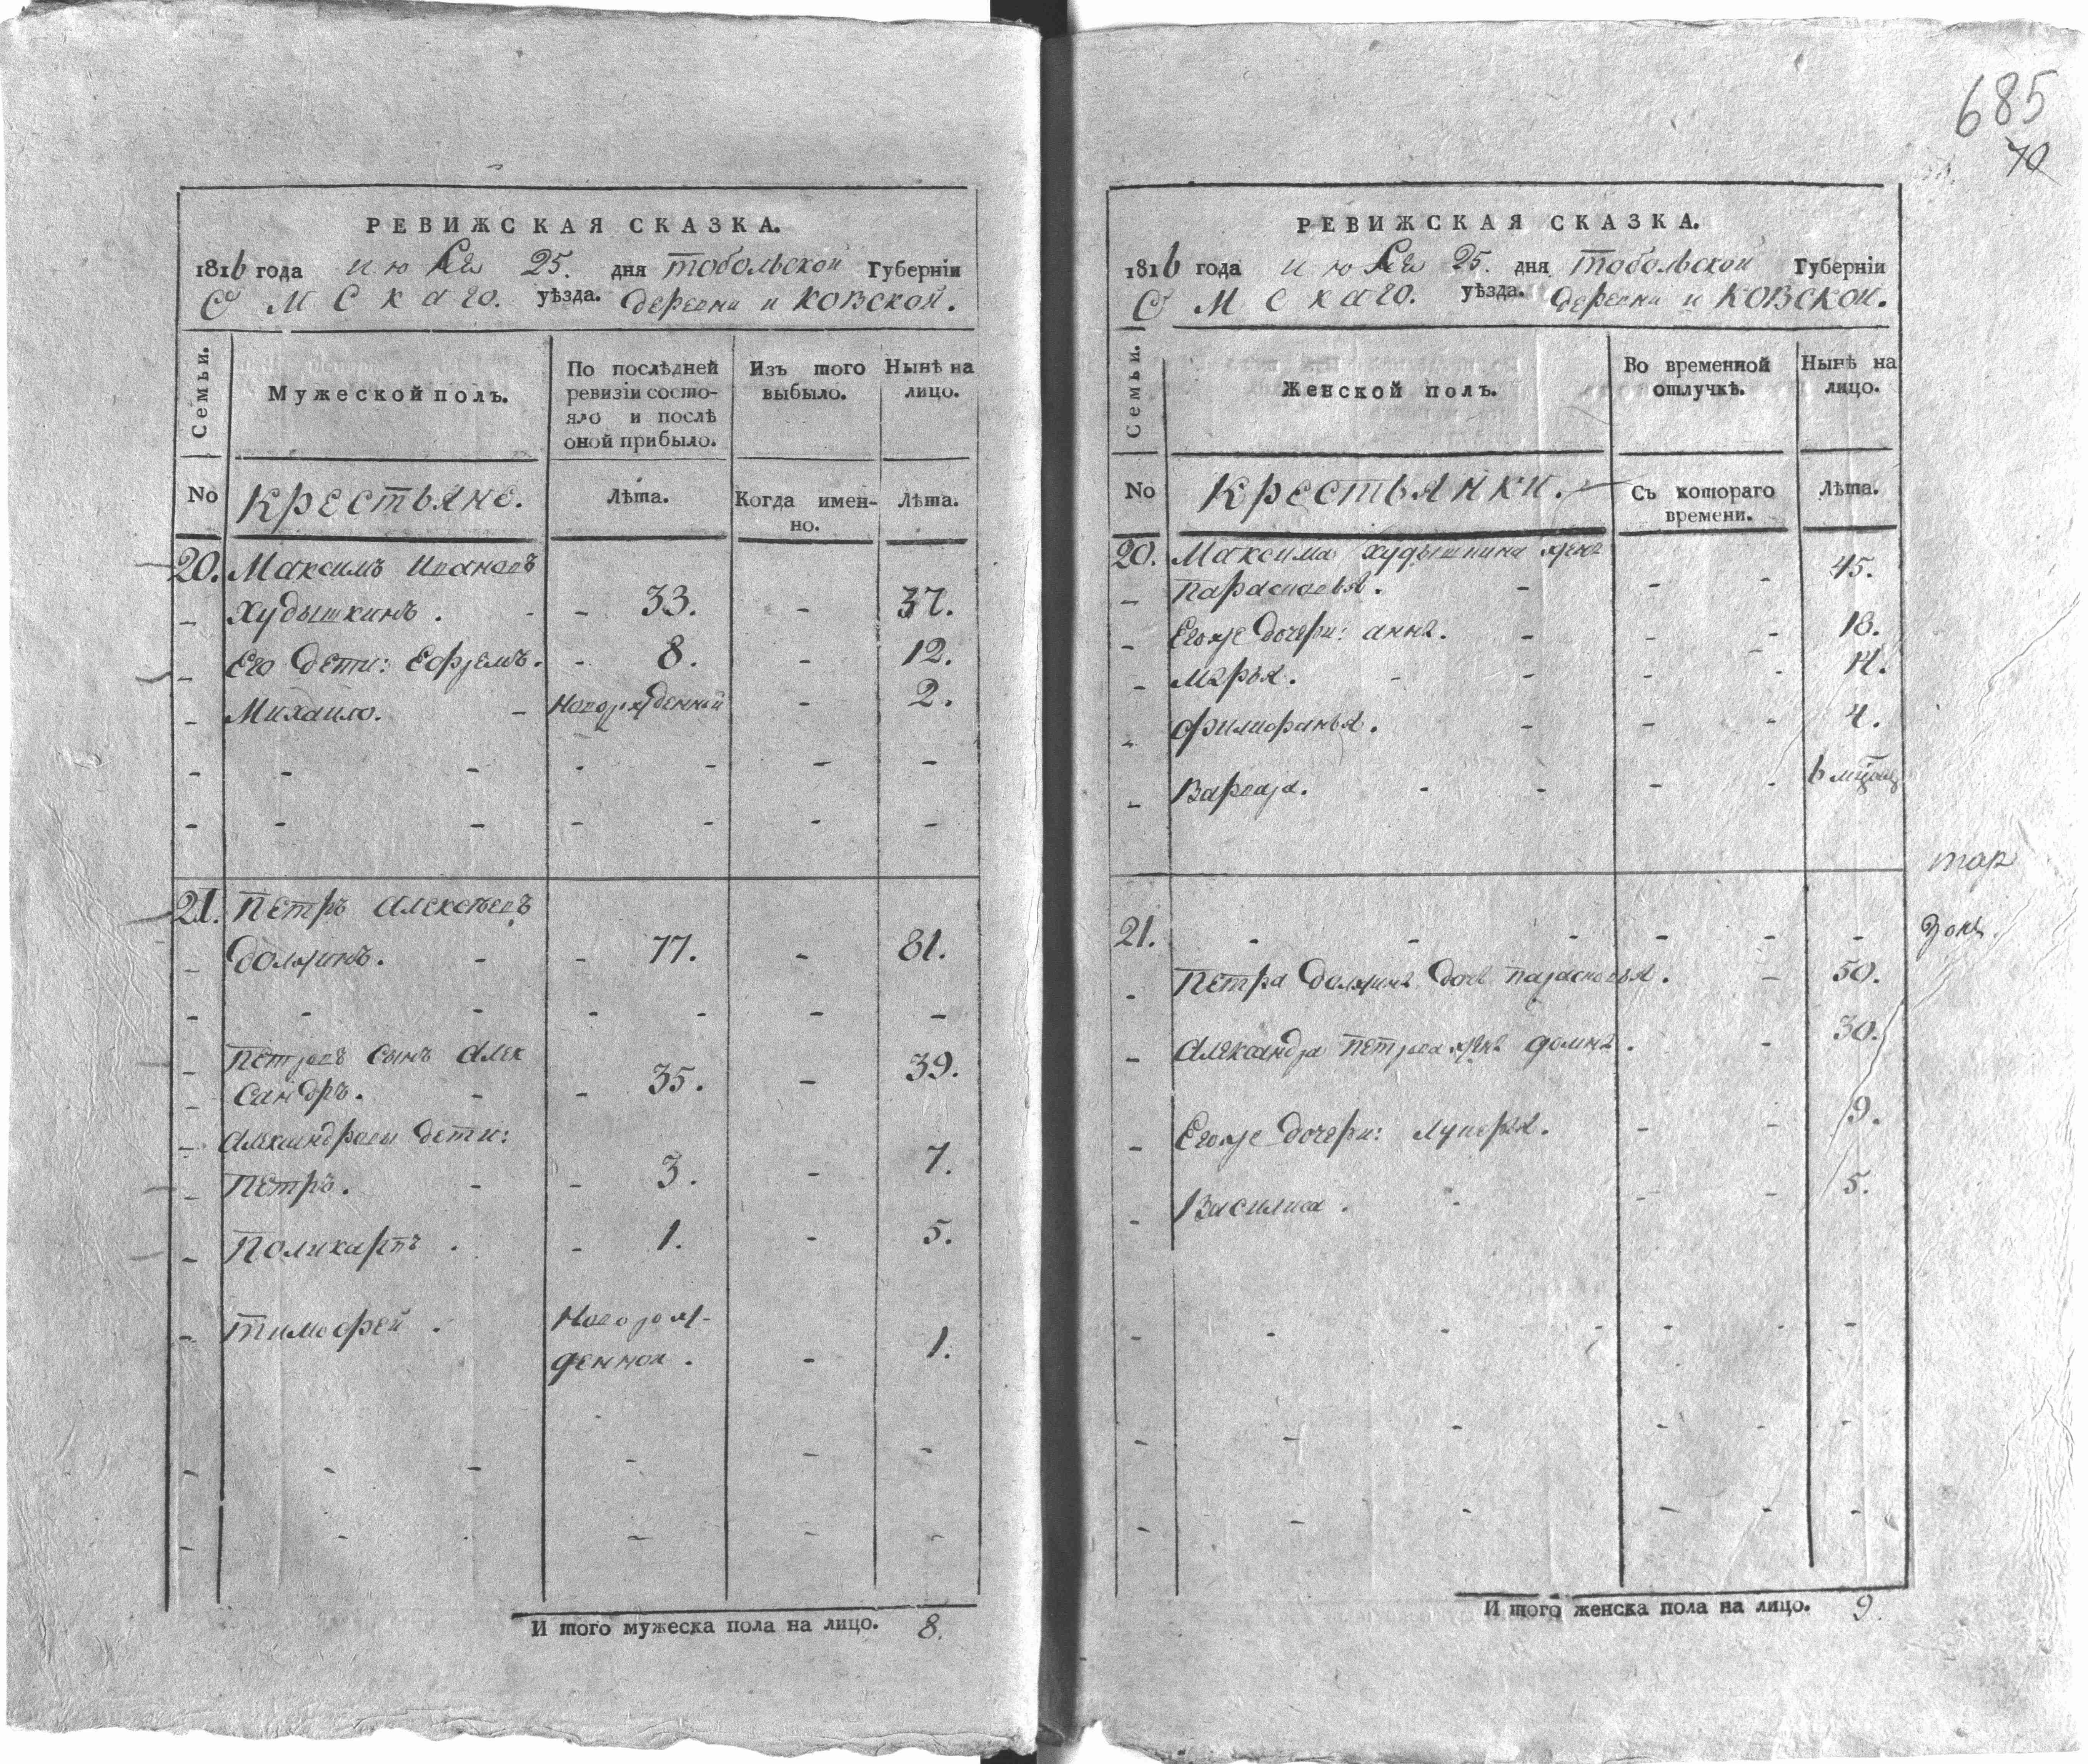 РЕВИЖСКАЯ СКАЗКА.
1816 года июля 25. дня тобольской Губерніи
Омскаго. уѣзда. деревни иковской.
Семьи.
Мужеской полъ.
По послѣдней ревизіи состо-
яло и послѣ
оной прибыло.
Изъ того
выбыло.
Нынѣ на
лицо.
No
крестьяне.
Лѣта.
Когда имен-
но.
Лѣта.
20. Максимъ Ивановъ
худышкинъ. - - 33. - 37.
Его дети: Ефремъ. - 8. - 12.
Михаило. - новорожденной - 2.
21. петръ алексеевъ
должинъ. - - 77. - 81.
петровъ сынъ алек
сандръ. - - 35. - 39.
александровы дети:
петръ. - - 3. - 7.
поликарпъ. - 1. - 5.
тимофей. новорож-
денной. - 1.
И того мужеска пола на лицо. 8.
685
70
РЕВИЖСКАЯ СКАЗКА.
1816 года июля 25. дня тобольской Губерніи
Омскаго. уѣзда. деревни иковской.
Семьи.
Женской полъ.
Во временной
отлучкѣ.
Нынѣ на
лицо.
No
крестьянки.
Съ котораго
времени.
Лѣта.
20. Максима худышкина жена
парасковья. - - - 45.
Егоже дочери: анна. - - - 18.
марья. - - - - 14.
филифанья. - - - 4.
варвара. - - - - 6 мѣсяц
21. - - - - - -
петра должина дочь парасковья. - 50.
александра петрова жена домна. - 30.
Егоже дочери: лукерья. - - 9.
василиса. - - - 5.
И того женска пола на лицо. 9.